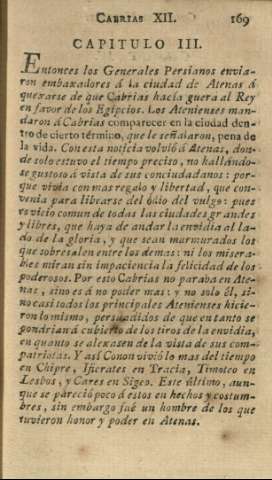 CABRIAS XII. 169
CAPITULO III.
Entonces los Generales Persianos envia-
ron embaxadores á la ciudad de Atenas á
quexarse de que Cabrias hacia guera al Rey
en favor de los Egipcios. Los Atenienses man-
daron á Cabrias comparecer en la ciudad den-
tro de cierto término, que le señalaron, pena de
la vida. Con esta noticia volvió á Atenas, don-
de solo estuvo el tiempo preciso, no hallándo-
se gustoso á vista de sus conciudadanos: por-
que vivia con mas regalo y libertad, que con-
venia para libarse del ódio del vulgo: pues
es vicio comun de todas las ciudades grandes
y libres, que haya de andar la envidia al la-
do de la gloria, y que sean murmurados los
que sobresalen entre los demas: ni los misera-
bles miran sin impaciencia la felicidad de los
poderosos. Por esto Cabrias no paraba en Ate-
nas, sino es á no poder mas: y no solo él, si-
no casi todos los principales Atenienses hicie-
ron lo mismo, persuadidos de que en tanto se
pondrian á cubierto de los tiros de la envidia,
en quanto se alexasen de la vista de sus com-
patriotas. Y así Conon vivió lo mas del tiempo
en Chipre, Ificrates en Tracia, Timoteo en
Lesbos, y Cares en Sigeo. Este último, aun-
que se pareció poco á estos en hechos y costum-
bres, sin embargo fué un hombre de los que
tuvieron honor y poder en Atenas.